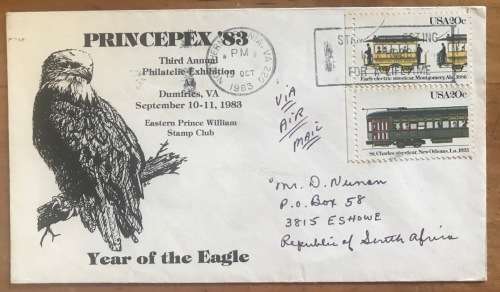 PRINCEPEX '83
Third Annual
Philatelic Exhibition
At
Dumfries, VA
September 10-11, 1983
Eastern Prince William
Stamp Club
Year of the Eagle
VA 222
PM
OCT
1983
FOR A LIFETIME
USA 20c
Early electric streetcar, Montgomery, Ala. 1886
USA 20c
St. Charles streetcar, New Orleans, La. 1923
VIA
AIR
MAIL
Mr. D. Nunan
P.O. Box 58
3815 ESHOWE
Republic of South Africa